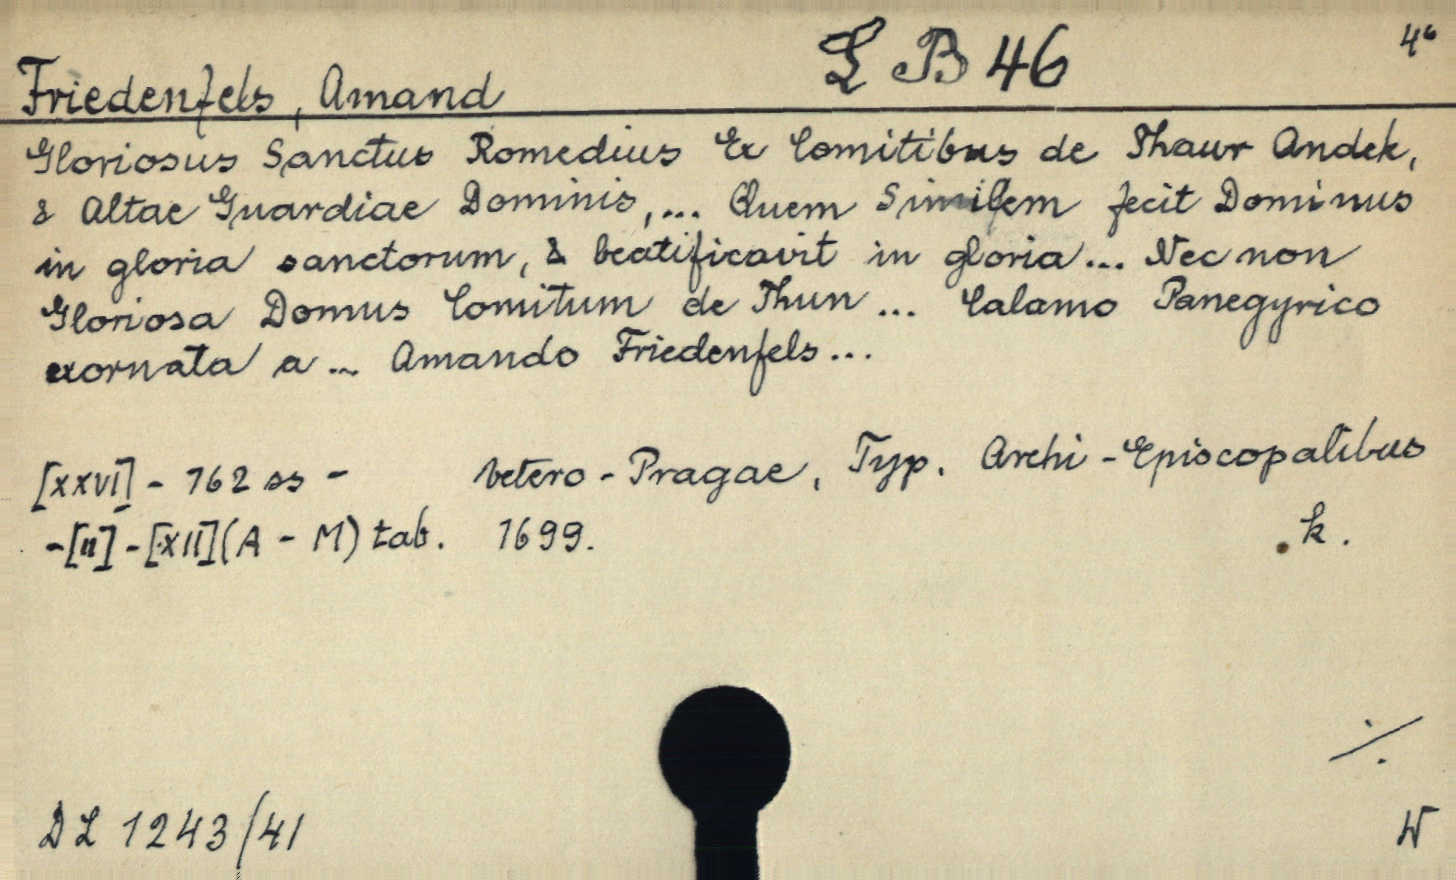 L B 46
4°
Friedenfels, Amand
Gloriosus Sanctus Romedius Ex Comitibus de Thaur Andek,
& Altae Guardiae Dominis,... Quem Similem fecit Dominus
in gloria sanctorum, & beatificavit in gloria... Nec non
Gloriosa Domus Comitum de Thun ... Calamo Panegyrico
exornata a ... Amando Friedenfels...
[XXVI] - 762 ss - Vetero-Pragae, Typ. Archi-Episcopalibus
-[II]-[XII](A - M) tab. 1699. k.
./.
DL 1243/41
W